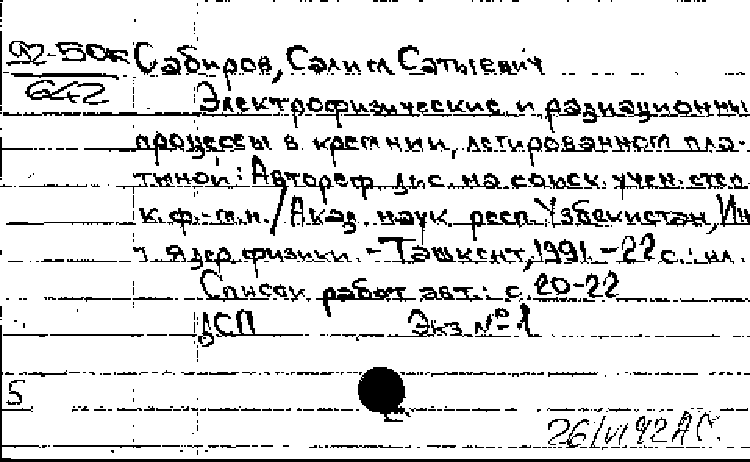 92-50к
642
Сабиров, Салим Сатыевич
Электрофизические и радиационны
процессы в кремнии, легированном пла-
тиной: Автореф. дис. на соиск. учен. степ.
к.ф.-м.н. / Акад. наук респ. Узбекистан, Ин
т ядер. физики. - Ташкент, 1991. - 22 с.: ил.
Список работ авт.: с. 20-22
ДСП Экз. № 1
5
26/VI 92 АС.